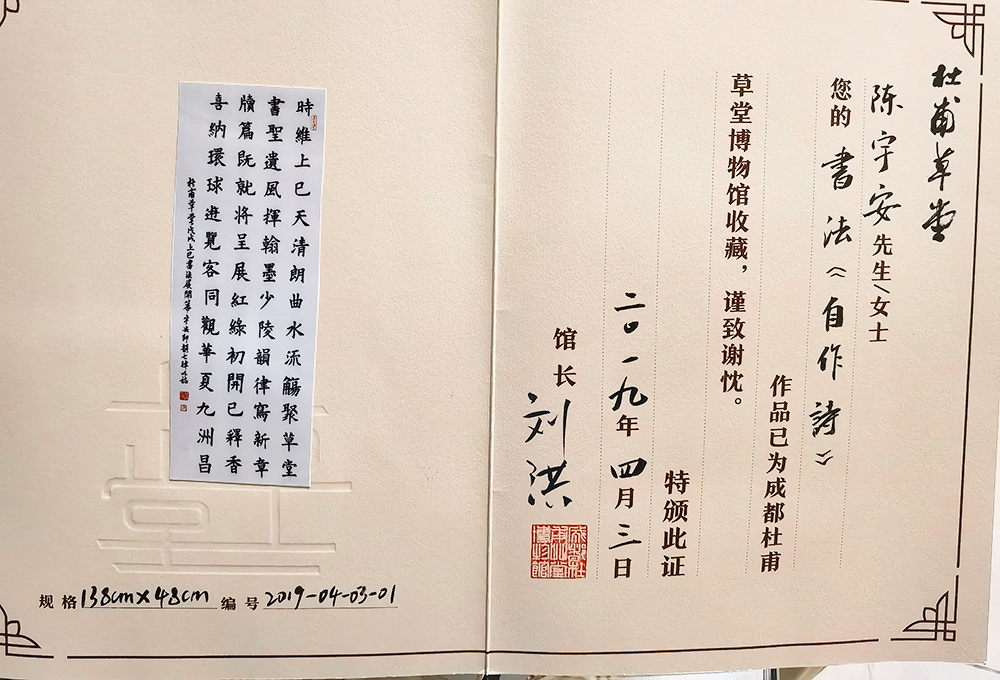 杜甫草堂
陈宇安先生/女士
您的书法《自作詩》
作品已为成都杜甫
草堂博物馆收藏，谨致谢忱。
特颁此证
二〇一九年四月三日
馆长 刘洪
成都杜甫草堂博物館
時維上巳天清朗曲水流觴聚草堂
書聖遺風揮翰墨少陵韻律寫新章
牘篇既就將呈展紅綠初開已釋香
喜納環球遊覽客同觀華夏九洲昌
杜甫草堂戊戌上巳書法展開幕宇安即賦七律
规格138cm×48cm 编号2019-04-03-01